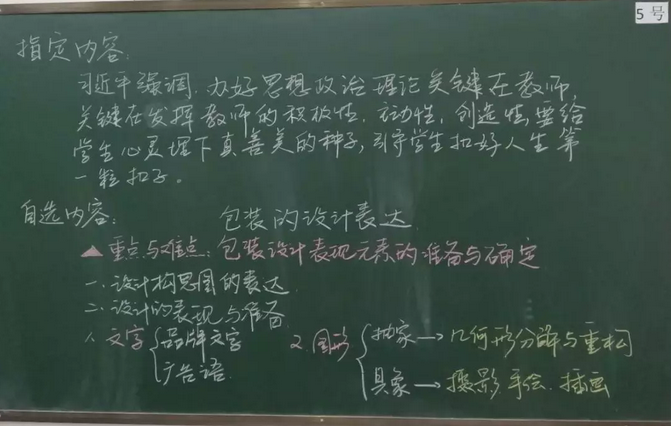 5号
指定内容:
习近平强调,办好思想政治理论关键在教师,
关键在发挥教师的积极性,主动性,创造性,要给
学生心灵埋下真善美的种子,引导学生扣好人生第
一粒扣子。
自选内容:
包装的设计表达
▲重点与难点:包装设计表现元素的准备与确定
一.设计构思图的表达
二.设计的表现与准备
1.文字{品牌文字
广告语
2.图形{抽象→几何形分解与重构
具象→摄影.手绘.插画